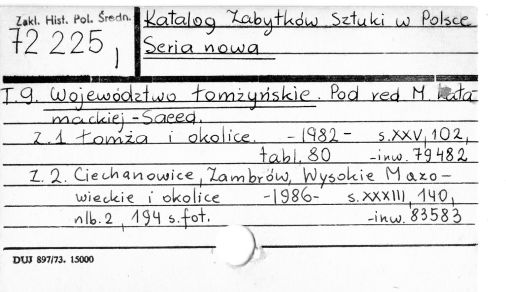 Zakł. Hist. Pol. Średn.
72 225 I
Katalog Zabytków Sztuki w Polsce
Seria nowa
T.9. Województwo Łomżyńskie. Pod red M. Kała-
mackiej-Saeed.
Z.1 Łomża i okolice. -1982- s.XXV, 102,
tabl. 80 -inw. 79482
Z.2. Ciechanowice, Zambrów, Wysokie Mazo-
wieckie i okolice -1986- s.XXXIII, 140,
nlb.2, 194 s.fot. -inw. 83583
DUJ 897/73. 15000